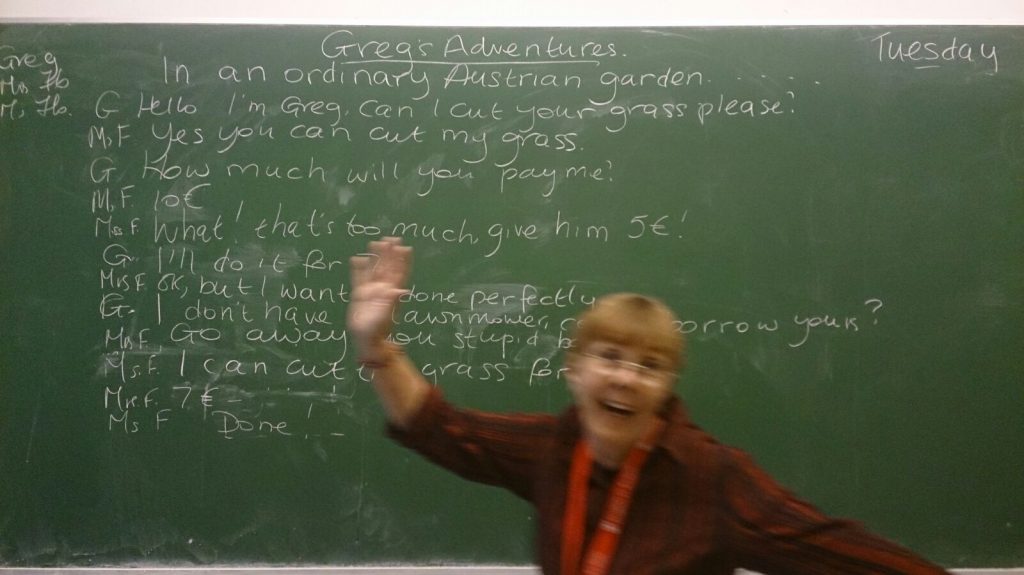 Greg's Adventures.
Tuesday
Greg
In an ordinary Austrian garden. . . . . .
G Hello I'm Greg. Can I cut your grass please?
M.F Yes you can cut my grass.
G. How much will you pay me?
M.F. 10€
Mrs F What! that's too much, give him 5€!
G. I'll do it for 7
Mrs F. OK, but I want done perfectly
G. I don't have a lawnmower, borrow yours?
Mrs F. Go away you stupid
Ms. F. I can cut grass for
Mrs F. 7€
Ms F Done!